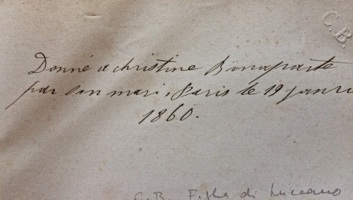 C.B.
Donné a christine Bonaparte
par son mari, Paris le 19 janvi
1860.
C.B. Figlia di Luciano